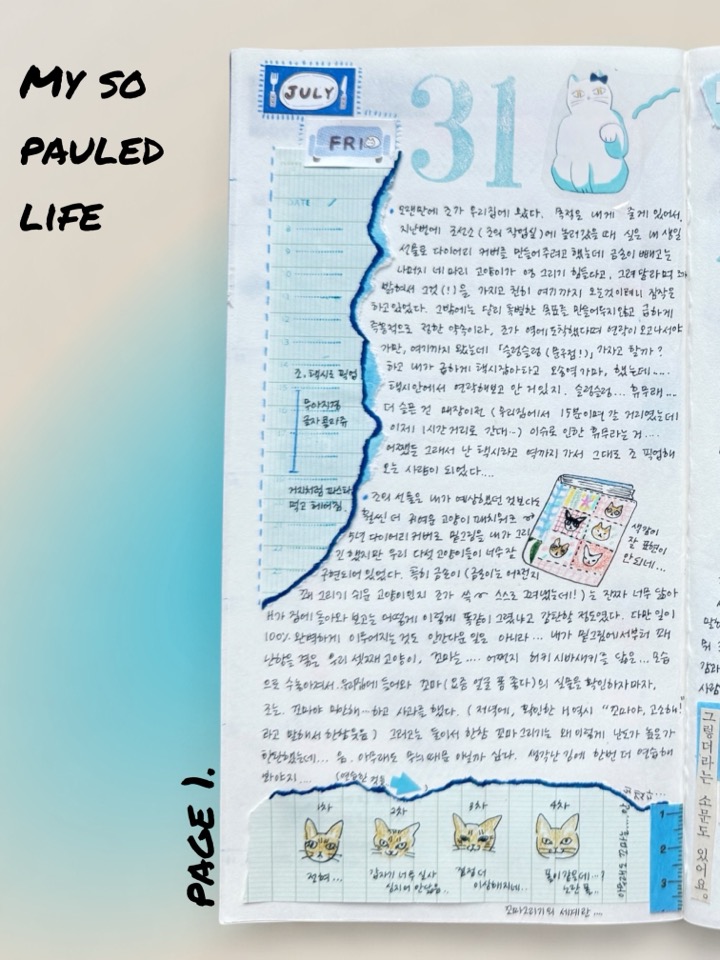 MY SO
PAULED
LIFE
PAGE 1.
JULY
FRI
31
DATE
조, 택시로 픽업
무아지경
글자콜라쥬
거지처럼 파스타
먹고 헤어짐.
• 오랜만에 조가 우리집에 왔다. 목적은 내게 줄게 있어서,
지난번에 조선소 (조의 작업실)에 놀러갔을 때 실은 내 생일
선물로 다이어리 커버를 만들어주려고 했는데 곰순이 빼고는
나머지 네 마리 고양이가 영 그리기 힘들다고, 그려달라며
그것(!)을 가지고 친히 여기까지 오는것이려니 짐작은
하고있었다. 그밖에는 달리 특별한 목표를 만들어두지않고 급하게
즉흥적으로 정한 약속이라, 조가 역에 도착했다며 연락이 오고나서야
가만, 여기까지 왔는데 「슬렁슬렁(문구점!)」 가자고 할까?
하고 내가 급하게 택시잡아타고 오송역 가마, 했는데....
택시안에서 연락해보고 안 거 있지. 슬렁슬렁... 휴무래...
더 슬픈 건 매장이전 (우리집에서 15분이면 갈 거리였는데
이제 1시간거리로 간대...) 이슈로 인한 휴무라는 거....
어쨌든 그래서 난 택시타고 역까지 가서 그대로 조 픽업해
오는 사람이 되었다....
• 조의 선물은 내가 예상했던 것보다도
훨씬 더 귀여운 고양이 패치워크
5년 다이어리 커버로 밑그림을 내가 그리
긴 했지만 우리 다섯 고양이들이 너무 잘
구현되어 있었다. 특히 곰순이 (곰순이는 어쩐지
꽤 그리기 쉬운 고양이인지 조가 쓱 스스로 그려냈는데!)는 진짜 너무 닮아
H가 집에 돌아와 보고는 어떻게 이렇게 똑같이 그렸냐고 감탄할 정도였다. 다만 일이
100% 완벽하게 이루어지는 것도 인간다운 일은 아니라... 내가 밑그림에서부터 꽤
난항을 겪은 우리 셋째 고양이, 꼬마는.... 어쩐지 허키 시바새키즈 닮은... 모습
으로 수놓아져서. 우리집에 들어와 꼬마(요즘 얼굴 폼 좋다)의 실물을 확인하자마자,
조는, 꼬마야 미안해...하고 사과를 했다. (저녁에, 확인한 H 역시 “꼬마야, 고소해!”
라고 말해서 한참웃음) 그리고는 둘이서 한참 꼬마그리기는 왜 이렇게 난도가 높은가
한탄했는데... 음, 아무래도 무늬 때문 아닐까 싶다. 생각난 김에 한번 더 연습해
봐야지....
색감이
잘 표현이
안되네...
(연습한 것들
1차
2차
3차
4차
전혀...
갑자기 너무 실사
점점 더
이상해지네..
꼬마그리기의 세계란...
1
2
3
그렇더라는 소문도 있어요.